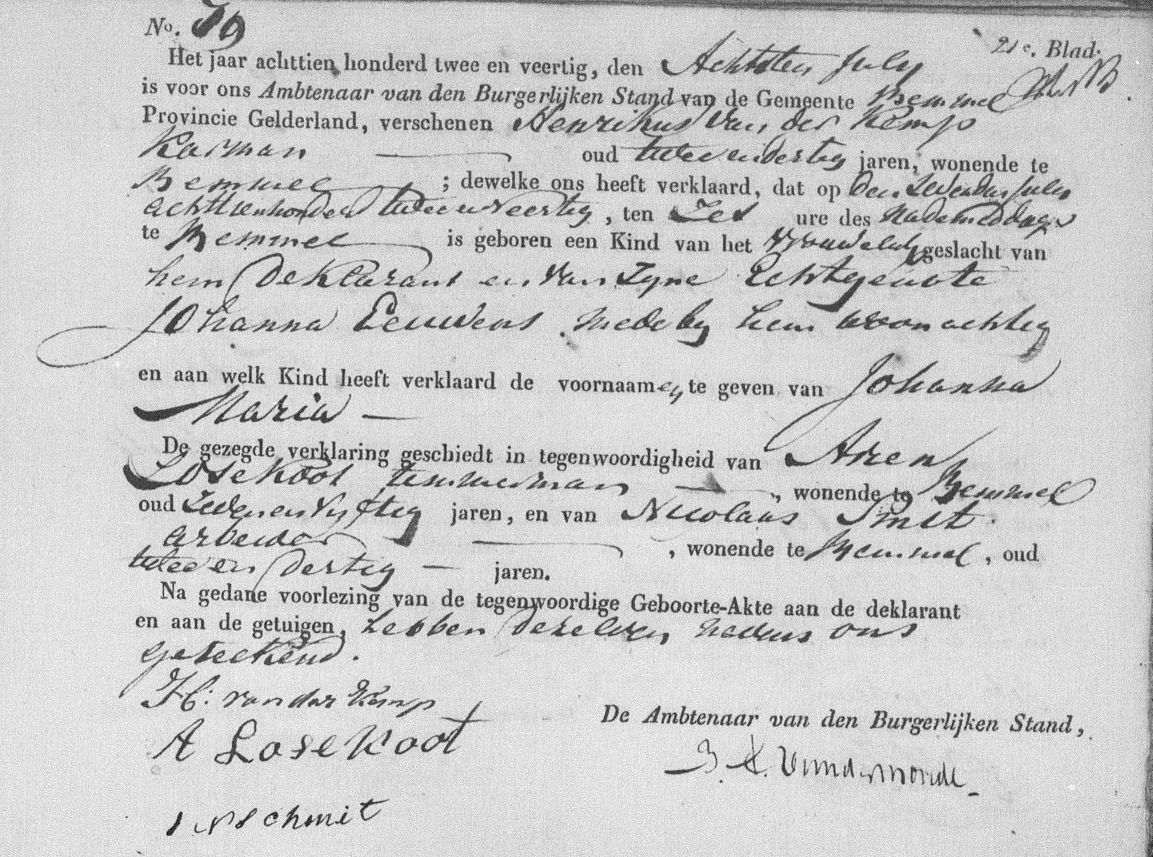 No. 79
21e. Blad.
Het jaar achttien honderd twee en veertig, den Achtsten July
is voor ons Ambtenaar van den Burgerlijken Stand van de Gemeente Bemmel
Provincie Gelderland, verschenen Henrikus van der Kemp
Karman oud twee en dertig jaren, wonende te
Bemmel ; dewelke ons heeft verklaard, dat op den zevenden July
achttienhonderd twee en veertig, ten Zes ure des nademiddags
te Bemmel is geboren een Kind van het vrouwelyk geslacht van
hem Deklarant en van zyne Echtgenote
Johanna Eeuwens mede by hem woonachtig
en aan welk Kind heeft verklaard de voornaamen te geven van Johanna
Maria
De gezegde verklaring geschiedt in tegenwoordigheid van Aren
Losekoot temmerman , wonende te Bemmel
oud zeven en vyftig jaren, en van Nicolaas Smit
arbeider , wonende te Bemmel, oud
twee en Dertig jaren.
Na gedane voorlezing van de tegenwoordige Geboorte-Akte aan de deklarant
en aan de getuigen, hebben dezelven nevens ons
geteekend.
H. van der Kemp
A Losekoot
De Ambtenaar van den Burgerlijken Stand,
schmit